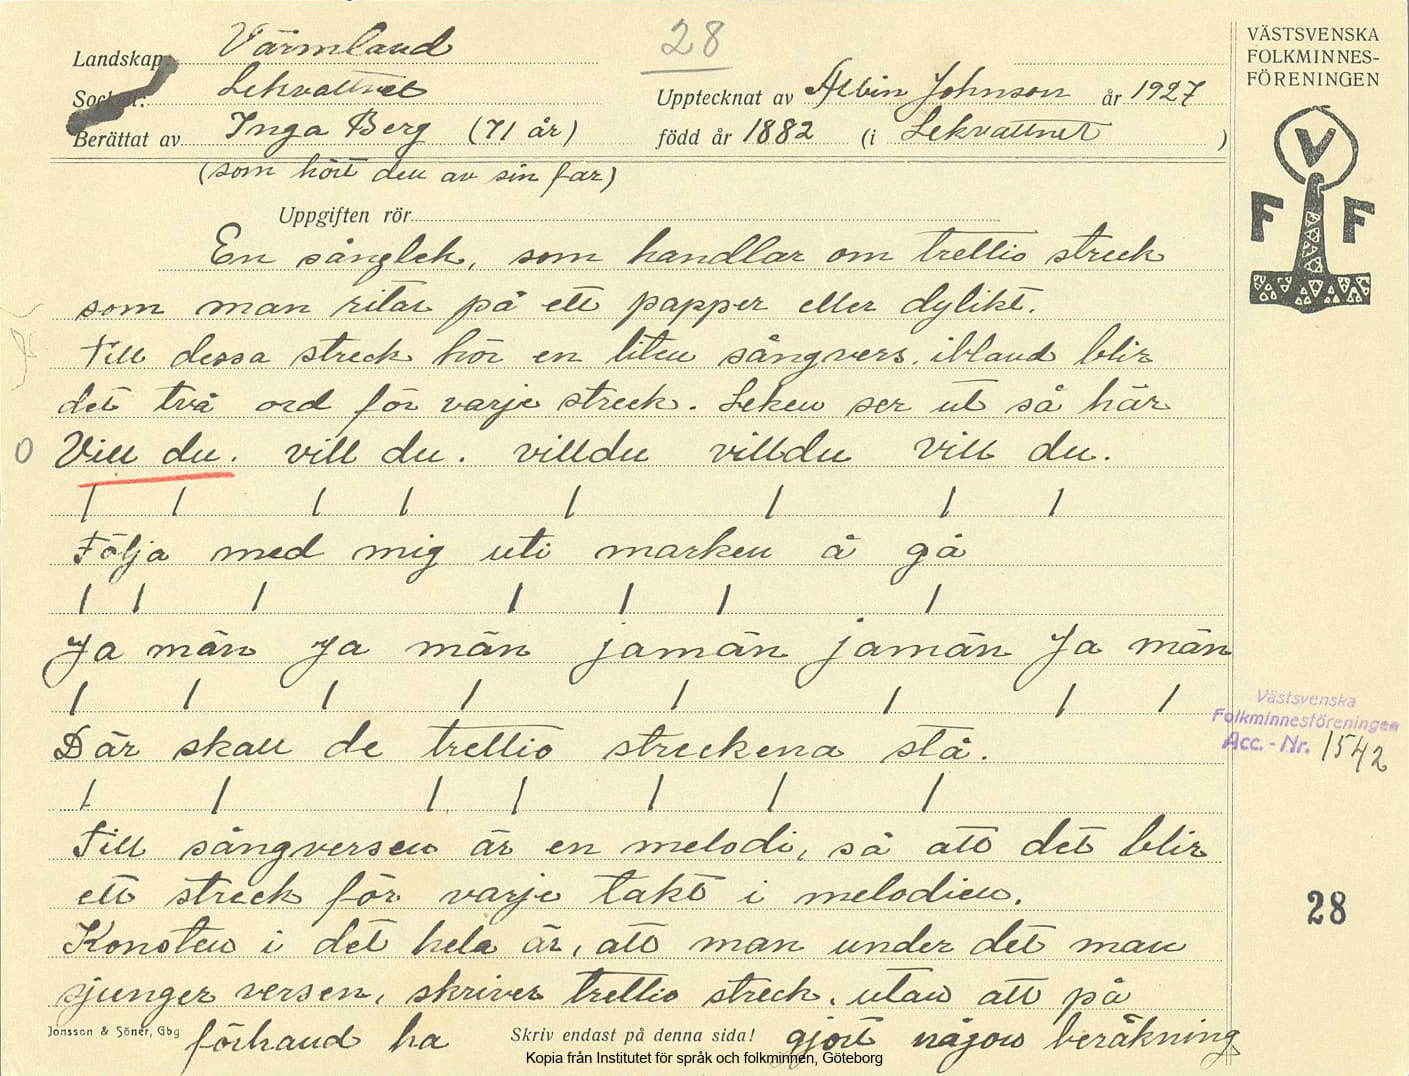 Landskap: Värmland
28
VÄSTSVENSKA
FOLKMINNES-
FÖRENINGEN
Socken: Lekvattnet
Upptecknat av Albin Johnson år 1927
Berättat av Inga Berg (71 år)
född år 1882 (i Lekvattnet )
(som hört den av sin far)
V
F F
Uppgiften rör
En sånglek, som handlar om trettio streck
som man ritar på ett papper eller dylikt.
Till dessa streck hör en liten sångvers, ibland blir
det två ord för varje streck. Leken ser ut så här
O Vill du. vill du. villdu villdu vill du.
| | | | | | | |
Följa med mig uti marken å gå
| | | | | | |
Ja män Ja män jamän jamän Ja män
| | | | | | | |
Västsvenska
Folkminnesföreningen
Acc.-Nr. 1542
Där skall de trettio strecken a stå.
| | | | | | |
Till sångversen är en melodi, så att det blir
ett streck för varje takt i melodien.
28
Konsten i det hela är, att man under det man
sjunger versen, skriver trettio streck, utan att på
Jonsson & Söner, Gbg
förhand ha gjort någon beräkning
Skriv endast på denna sida!
Kopia från Institutet för språk och folkminnen, Göteborg